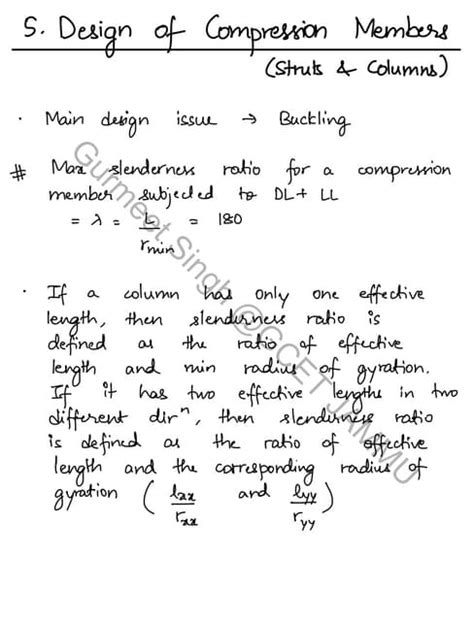 5. Design of Compression Members
(Struts & Columns)
· Main design issue → Buckling
# Max slenderness ratio for a compression
member subjected to DL + LL
= λ = L/rmin = 180
· If a column has only one effective
length, then slenderness ratio is
defined as the ratio of effective
length and min radius of gyration.
If it has two effective lengths in two
different dirⁿ, then slenderness ratio
is defined as the ratio of effective
length and the corresponding radius of
gyration (lxx/rxx and lyy/ryy)
Gurmeet Singh @GCET JAMMU